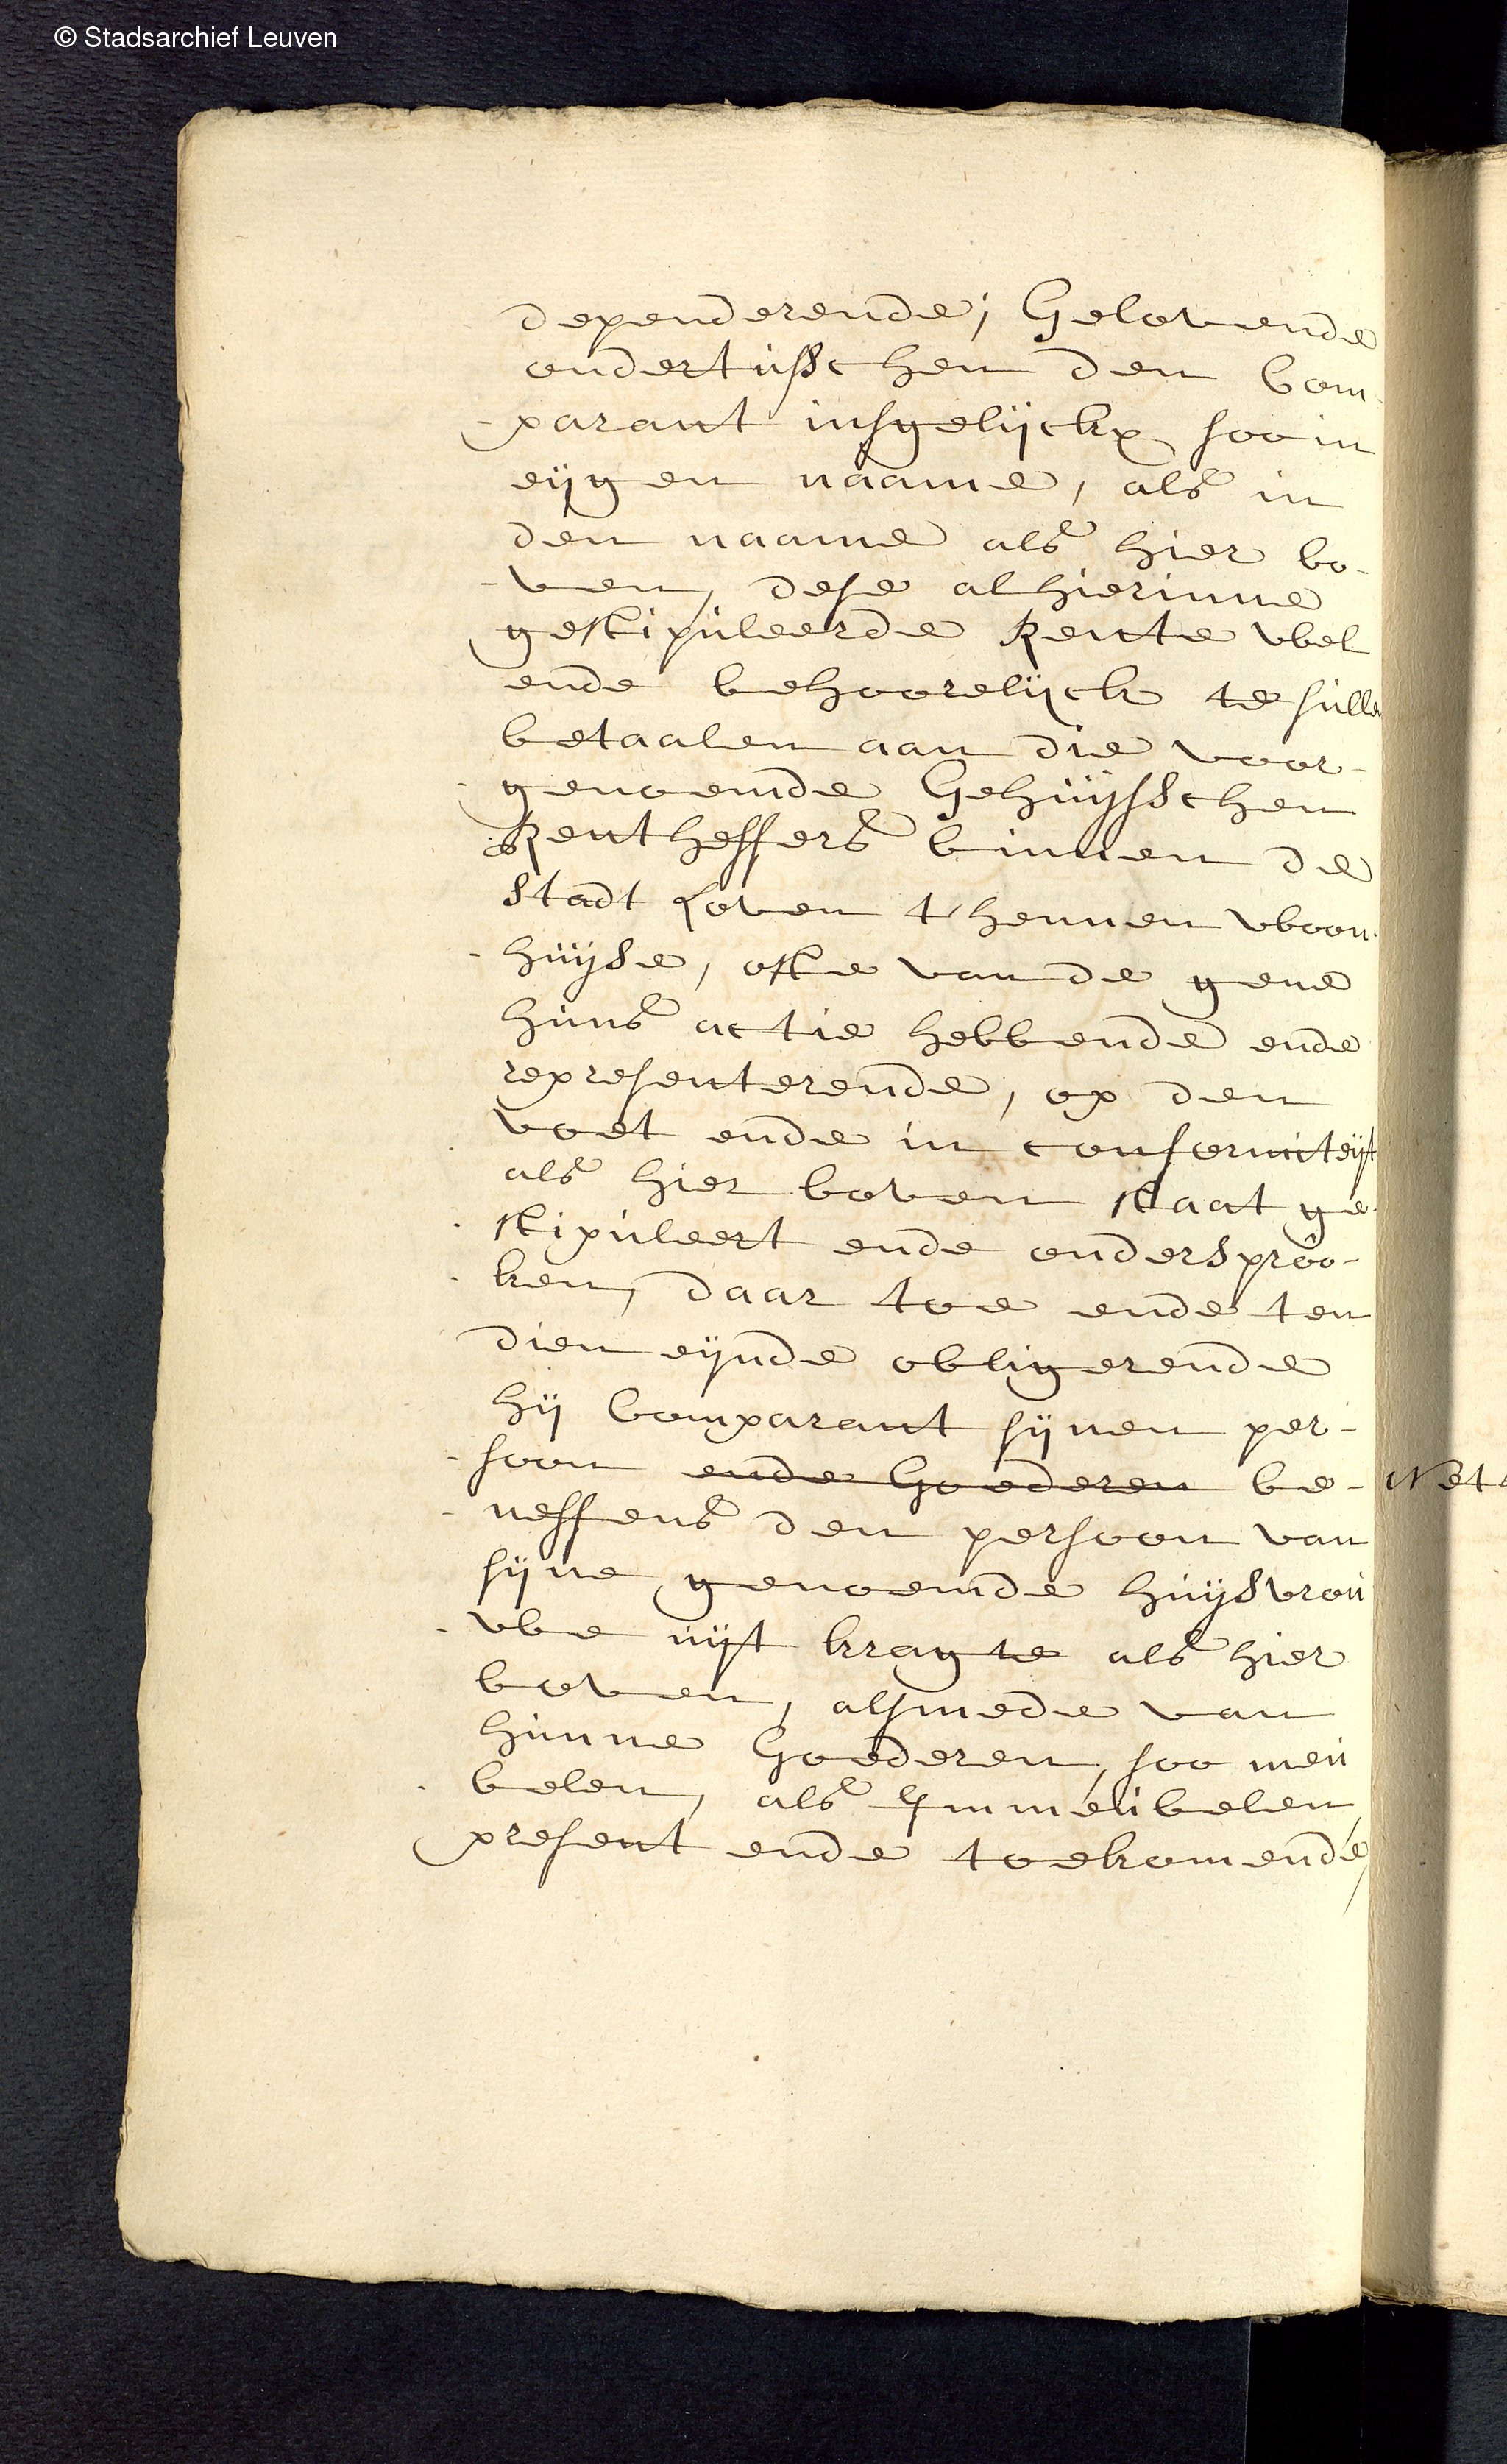 © Stadsarchief Leuven
dependerende; Gelovende
ondertusschen den Com-
-parant insgelijckx soo in
eijgen naame, als in
den naame als hier bo-
-ven, dese alhierinne
gestipuleerde Rente wel
ende behoorelijck te sulle
betaalen aan die voor-
-genoemde Gehuijsschen
Rentheffers binnen de
stadt Loven t' hennen woon-
-huijse, ofte van de gene
huns actie hebbende ende
representerende, op den
voet ende in conformiteijt
als hier boven staat ge-
-stipuleert ende ondersproo-
-ken, daar toe ende ten
dien eijnde obligerende
hij Comparant sijnen per-
-soon ende Goederen be-
-neffens den persoon van
sijne genoemde huijsvrou
-we uijt kragte als hier
boven, alsmede van
hunne Goederen, soo meu
-belen, als Immeubelen,
present ende toekomende,